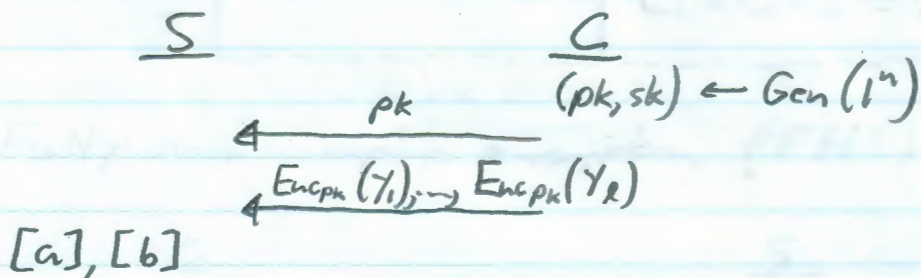 S C
(pk, sk) ← Gen(1ⁿ)
pk
Enc_pk(y₁), ..., Enc_pk(y_ℓ)
[a], [b]